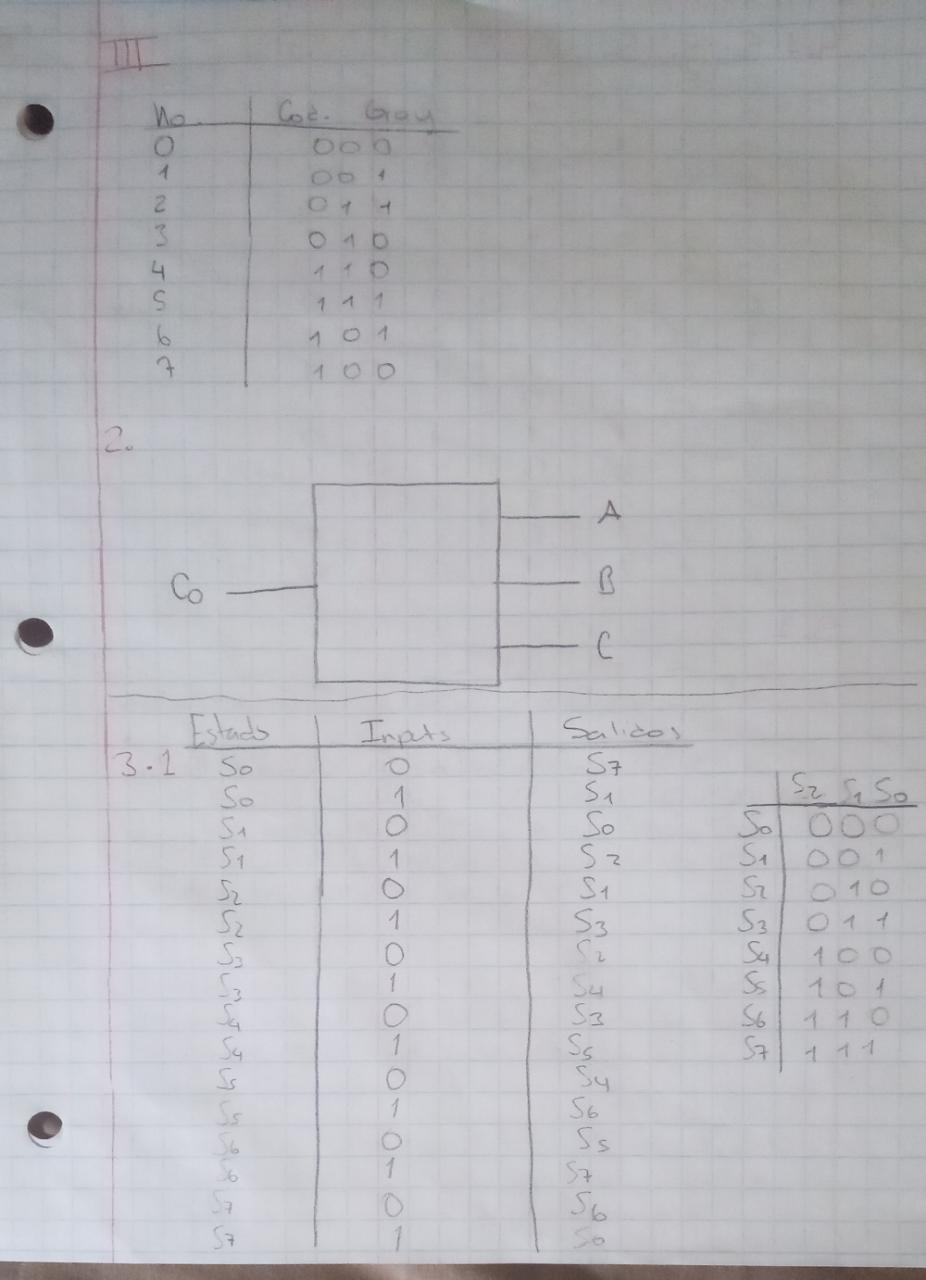 III
No. Cod. Gray
0 000
1 001
2 011
3 010
4 110
5 111
6 101
7 100
2.
A
C0 B
C
Estado Inputs Salidas
3.1 S0 0 S7
S0 1 S1
S1 0 S0
S1 1 S2
S2 0 S1
S2 1 S3
S3 0 S2
S3 1 S4
S4 0 S3
S4 1 S5
S5 0 S4
S5 1 S6
S6 0 S5
S6 1 S7
S7 0 S6
S7 1 S0
S2 S1 S0
S0 000
S1 001
S2 010
S3 011
S4 100
S5 101
S6 110
S7 111